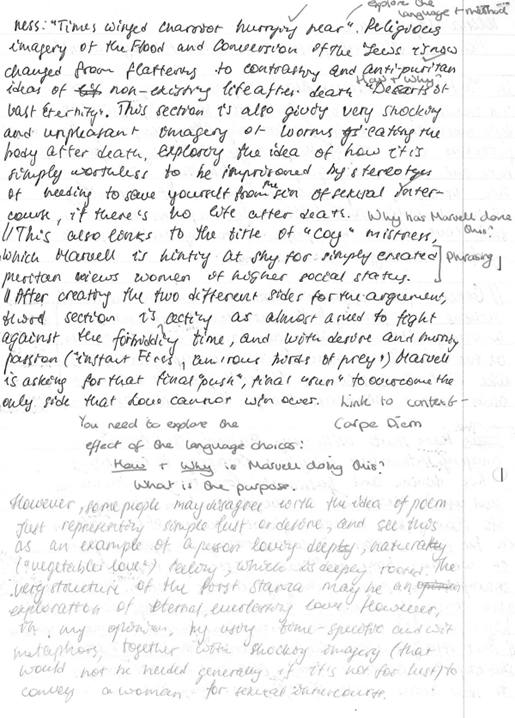 explore the
language + method
ness: "Times winged charriot hurrying near". Religuous
imagery of the Flood and Conversion of the Jews is now
changed from flattering to contrasting and anti-puritan
How + Why?
ideas of non-existing life after death "Desarts of
vast Eternity". This section is also giving very shocking
and unpleasant imagery of worms eating the
body after death, exploring the idea of how it is
simply worthless to be imprisoned by stereotypes
of needing to save yourself from the sin of sexual inter-
course, if there is no life after death. Why has Marvell done
this?
// This also links to the title of "Coy" mistress,
which Marvell is hinting at shy for simply created Phrasing
puritan views women of higher social status.
// After creating the two different sides for the argument,
third section is acting as almost as to fight
against the forbidding time, and with desire and
passion ("instant Fires, amirous birds of prey") Marvell
is asking for that final "push", final "run" to overcome the
only side that Love cannot win over. Link to context -
Carpe Diem
You need to explore the
effect of the language choices:
How + Why is Marvell doing this?
What is the purpose.
However, some people may disagree with the idea of poem
just representing simple lust or desire, and see this
as an example of a person loving deeply, naturally
("vegetable love") , which is deeply rooted. The
very structure of the first stanza may be an
exploration of eternal, love. However,
in my opinion, by using time-specific and
metaphors, together with shocking imagery (that
would not be needed generally if it's not for lust) to
convey a woman for sexual intercourse.